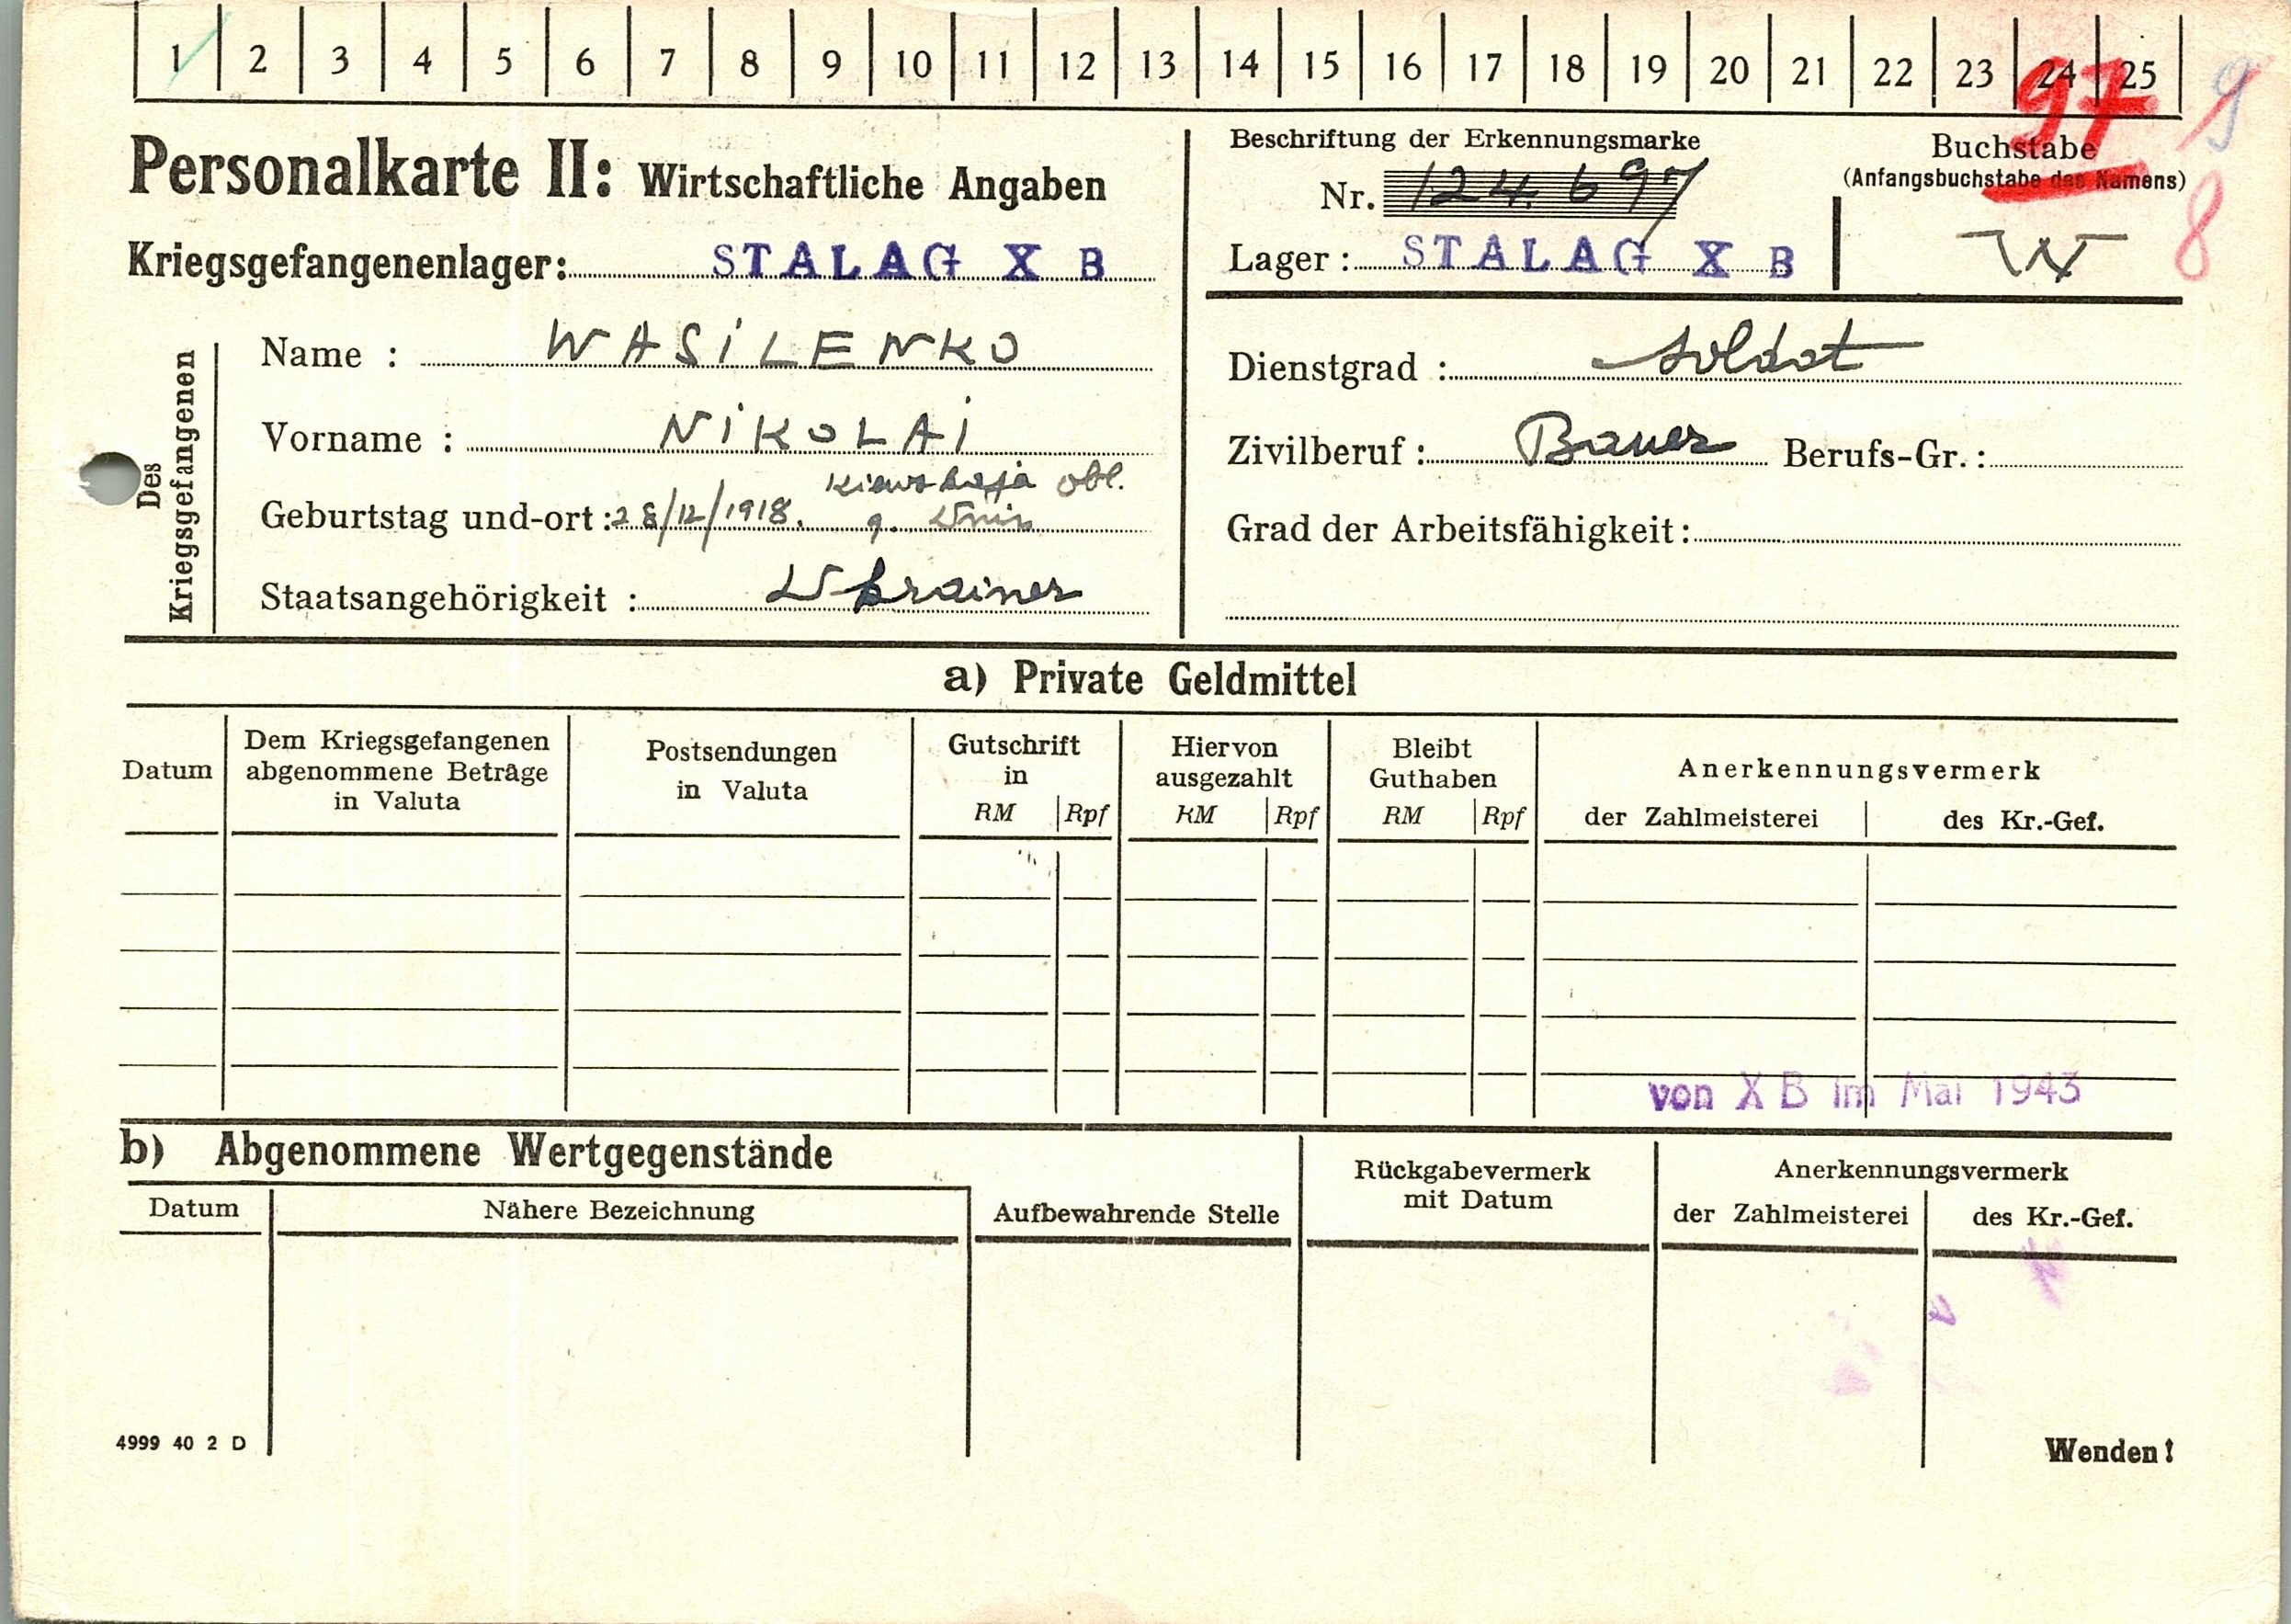 1 2 3 4 5 6 7 8 9 10 11 12 13 14 15 16 17 18 19 20 21 22 23 24 25
97 9
8
Personalkarte II: Wirtschaftliche Angaben
Kriegsgefangenenlager: STALAG X B
Beschriftung der Erkennungsmarke
Nr. 124697
Lager: STALAG X B
Buchstabe
(Anfangsbuchstabe des Namens)
W
Des
Kriegsgefangenen
Name : WASILENKO
Vorname : NIKOLAI
Kiewskaja obl.
Geburtstag und-ort: 28/12/1918. g.
Staatsangehörigkeit : Ukrainer
Dienstgrad : Soldat
Zivilberuf : Bauer Berufs-Gr.:
Grad der Arbeitsfähigkeit:
a) Private Geldmittel
Datum
Dem Kriegsgefangenen
abgenommene Beträge
in Valuta
Postsendungen
in Valuta
Gutschrift
in
RM Rpf
Hiervon
ausgezahlt
RM Rpf
Bleibt
Guthaben
RM Rpf
Anerkennungsvermerk
der Zahlmeisterei des Kr.-Gef.
von X B im Mai 1943
b) Abgenommene Wertgegenstände
Datum
Nähere Bezeichnung
Aufbewahrende Stelle
Rückgabevermerk
mit Datum
Anerkennungsvermerk
der Zahlmeisterei des Kr.-Gef.
4999 40 2 D
Wenden!